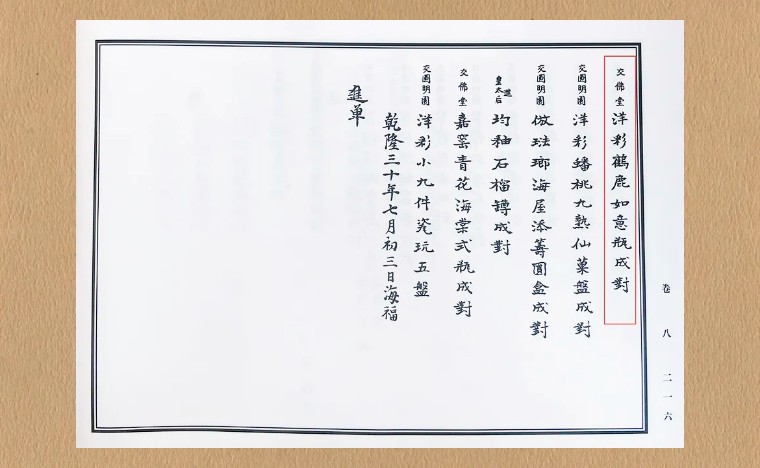 交佛堂 洋彩鶴鹿如意瓶成對
交圓明園 洋彩蟠桃九熟仙菓盤成對
交圓明園 倣琺瑯海屋添籌圓盒成對
進皇太后 均釉石榴罇成對
交佛堂 嘉窑青花海棠式瓶成對
交圓明園 洋彩小九件瓷玩五盤
乾隆三十年七月初三日海福
進单
卷八 二一六